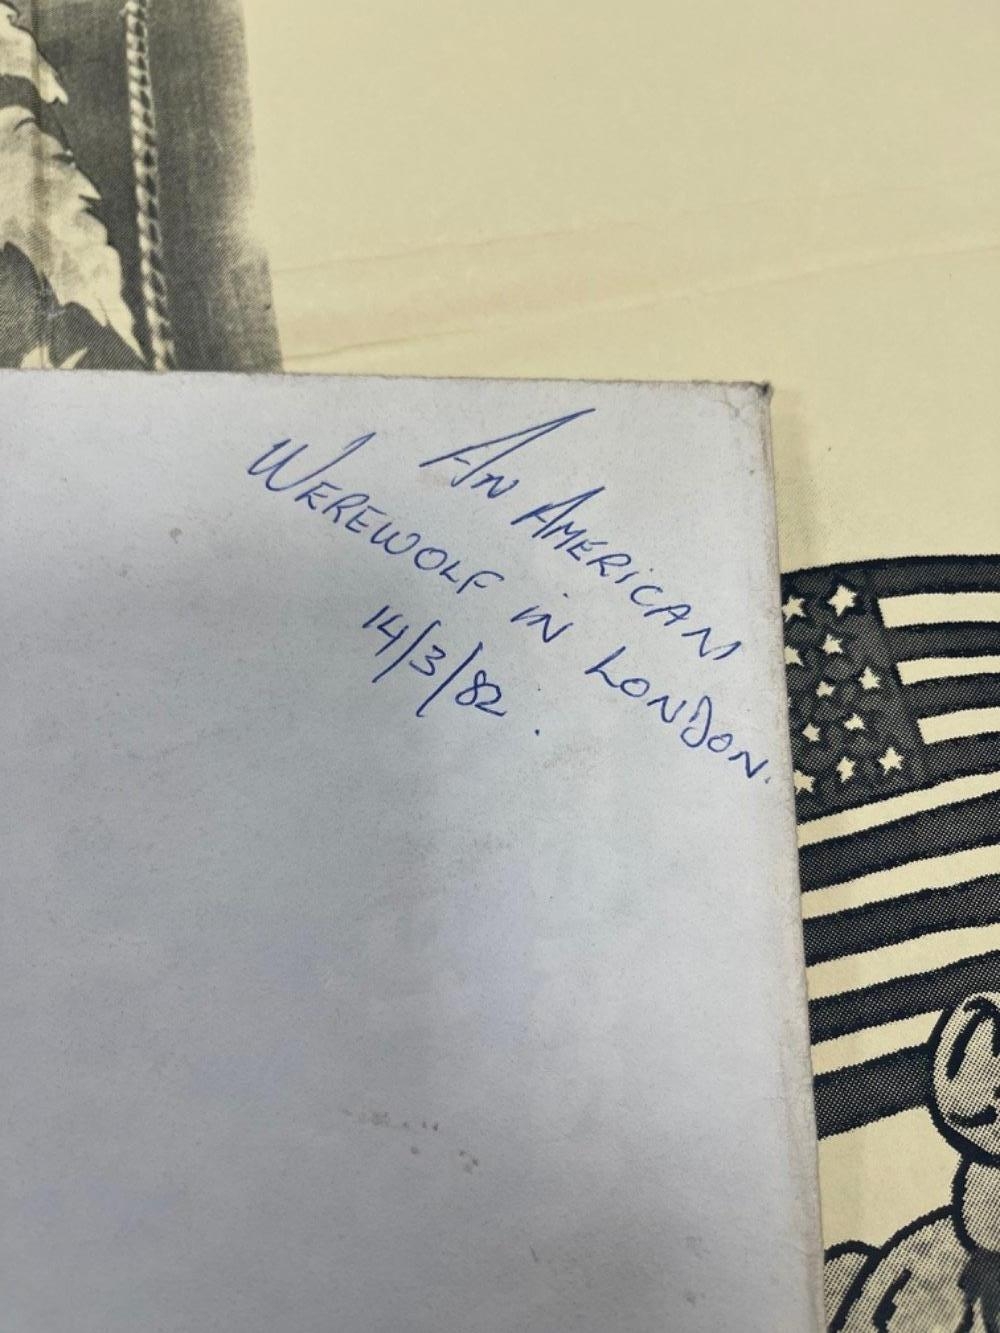 AN AMERICAN
WEREWOLF IN LONDON.
14/3/82.